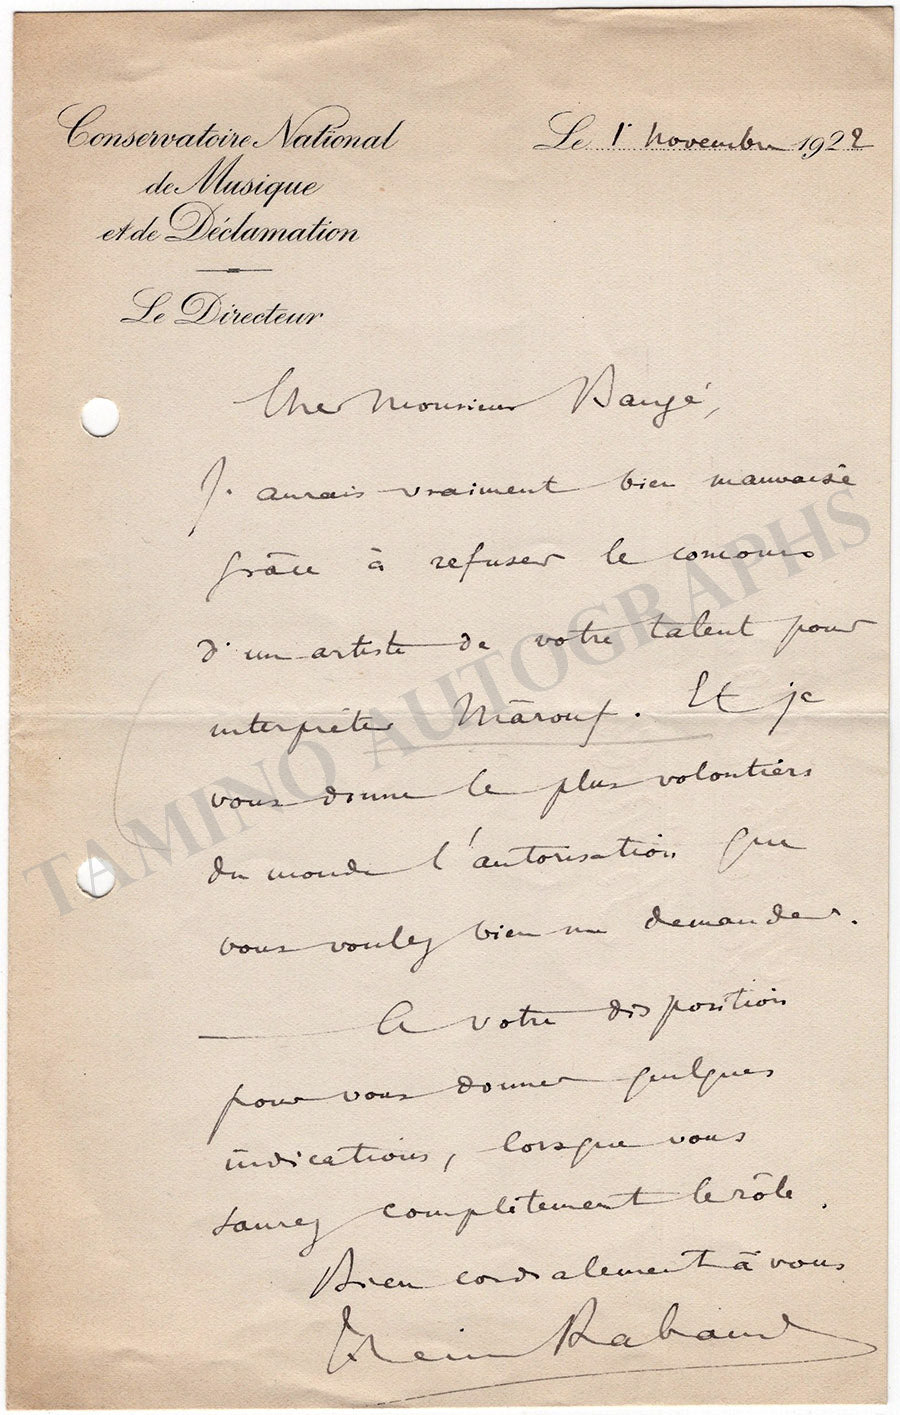 Conservatoire National
de Musique
et de Déclamation
Le Directeur
Le 1er novembre 1922
Cher Monsieur Baugé,
J'aurais vraiment bien mauvaise
grâce à refuser le concours
d'un artiste de votre talent pour
interpréter Mârouf. Et je
vous donne le plus volontiers
du monde l'autorisation que
vous voulez bien me demander.
— A votre disposition
pour vous donner quelques
indications, lorsque vous
saurez complètement le rôle.
Bien cordialement à vous
Henri Rabaud
TAMINO AUTOGRAPHS